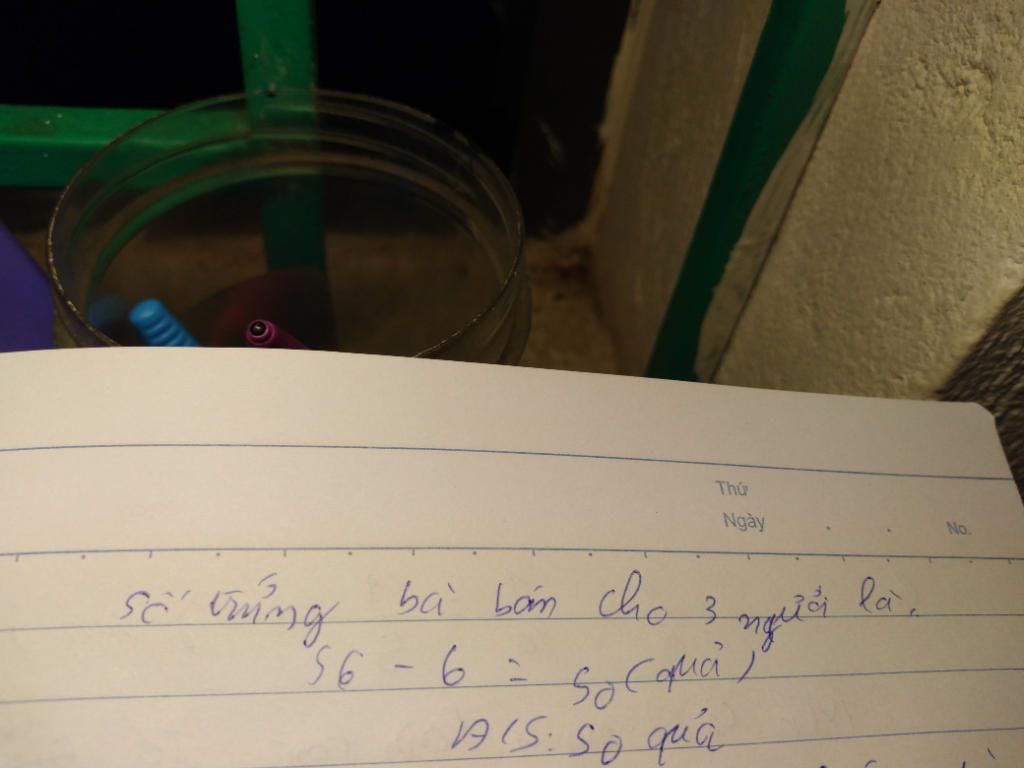 Thứ
Ngày
No.
Số trứng bà bán cho 3 người là.
56 - 6 = 50 (quả)
Đ/S: 50 quả